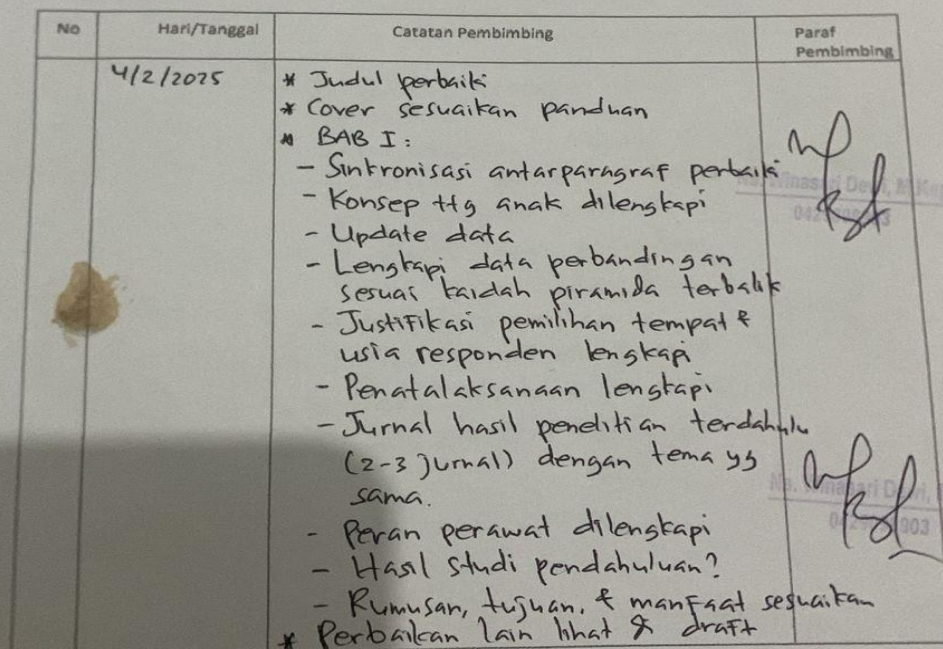 No Hari/Tanggal Catatan Pembimbing Paraf Pembimbing
4/2/2025
* Judul perbaiki
* Cover sesuaikan panduan
* BAB I :
- Sinkronisasi antarparagraf perbaiki
- Konsep ttg anak dilengkapi
- Update data
- Lengkapi data perbandingan
sesuai kaidah piramida terbalik
- Justifikasi pemilihan tempat &
usia responden lengkapi
- Penatalaksanaan lengkapi
- Jurnal hasil penelitian terdahulu
(2-3 jurnal) dengan tema yg
sama.
- Peran perawat dilengkapi
- Hasil studi pendahuluan?
- Rumusan, tujuan, & manfaat sesuaikan
* Perbaikan lain lihat draft